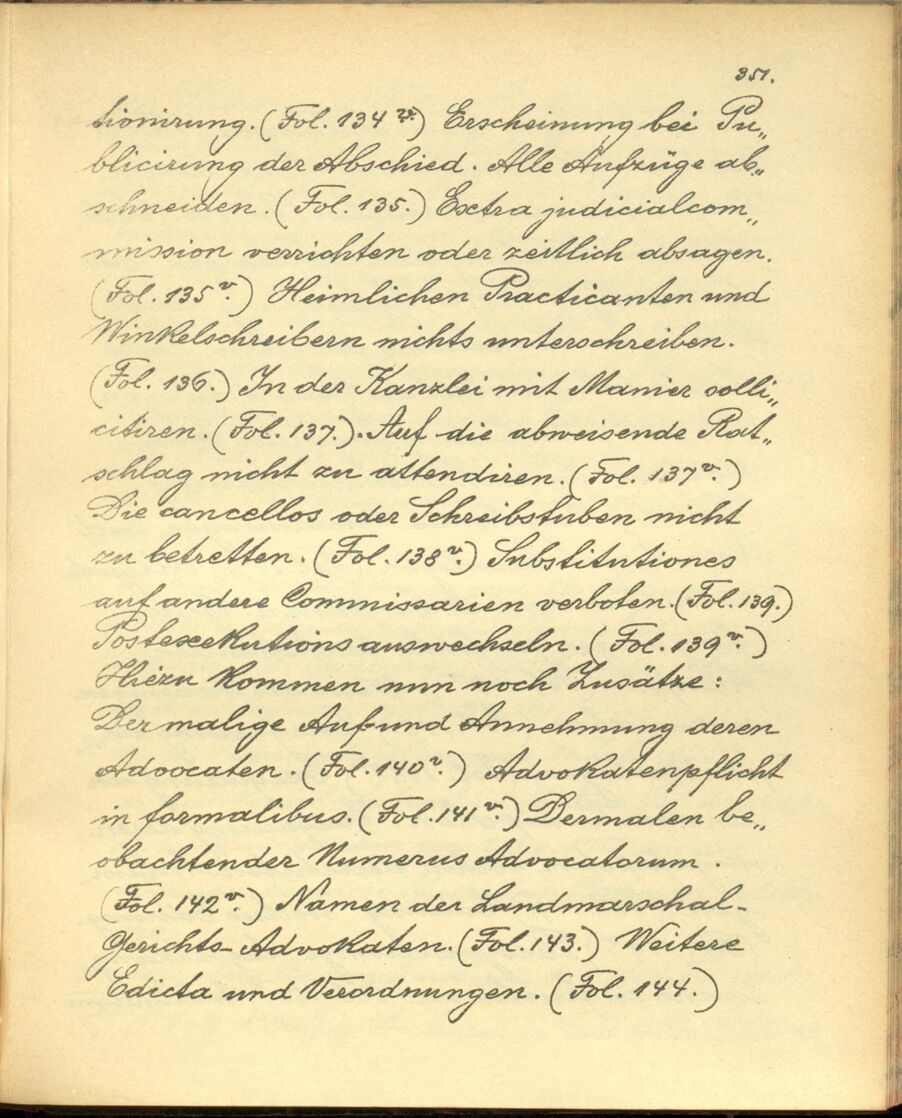 351.
tionirung. (Fol. 134 v.) Erscheinung bei Pu„
blicirung der Abschied. Alle Aufzüge ab„
schneiden. (Fol. 135.) Extra judicialcom„
mission verrichten oder zeitlich absagen.
(Fol. 135 v.) Heimlichen Practicanten und
Winkelschreibern nichts unterschreiben.
(Fol. 136.) In der Kanzlei mit Manier solli„
citiren. (Fol. 137.). Auf die abweisende Rat„
schlag nicht zu attendiren. (Fol. 137 v.)
Die cancellos oder Schreibstuben nicht
zu betretten. (Fol. 138 v.) Substitutiones
auf andere Commissarien verboten. (Fol. 139.)
Postexekutions auswechseln. (Fol. 139 v.)
Hiezu kommen nun noch Zusätze:
Der malige Auf und Annehmung deren
Advocaten. (Fol. 140 v.) Advokatenpflicht
in formalibus. (Fol. 141 v.) Dermalen be„
obachtender Numerus Advocatorum.
(Fol. 142 v.) Namen der Landmarschal-
Gerichts-Advokaten. (Fol. 143.) Weitere
Edicta und Verordnungen. (Fol. 144.)